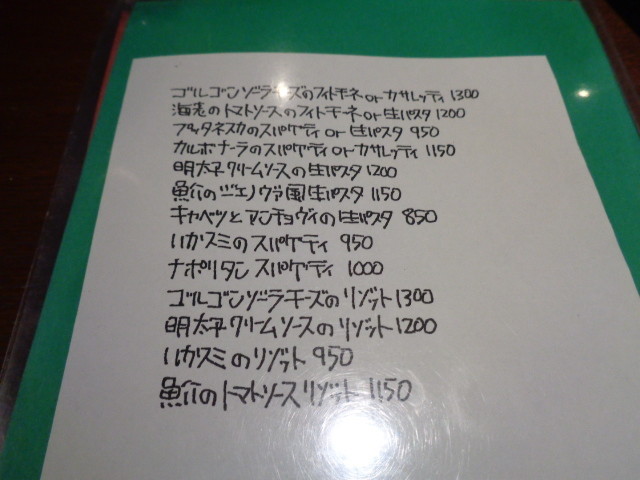 ゴルゴンゾーラチーズのフィトチーネ or カサレッティ 1300
海老のトマトソースのフィトチーネ or 生パスタ 1200
プッタネスカのスパゲティ or 生パスタ 950
カルボナーラのスパゲティ or カサレッティ 1150
明太子クリームソースの生パスタ 1200
魚介のジェノヴァ風生パスタ 1150
キャベツとアンチョヴィの生パスタ 850
いカスミのスパゲティ 950
ナポリタン スパゲティ 1000
ゴルゴンゾーラチーズのリゾット 1300
明太子クリームソースのリゾット 1200
いカスミのリゾット 950
魚介のトマトソースリゾット 1150